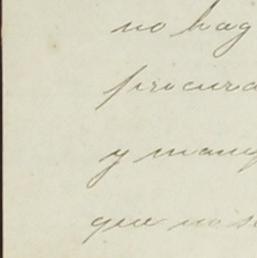 no hag
procura
y manq
que no s